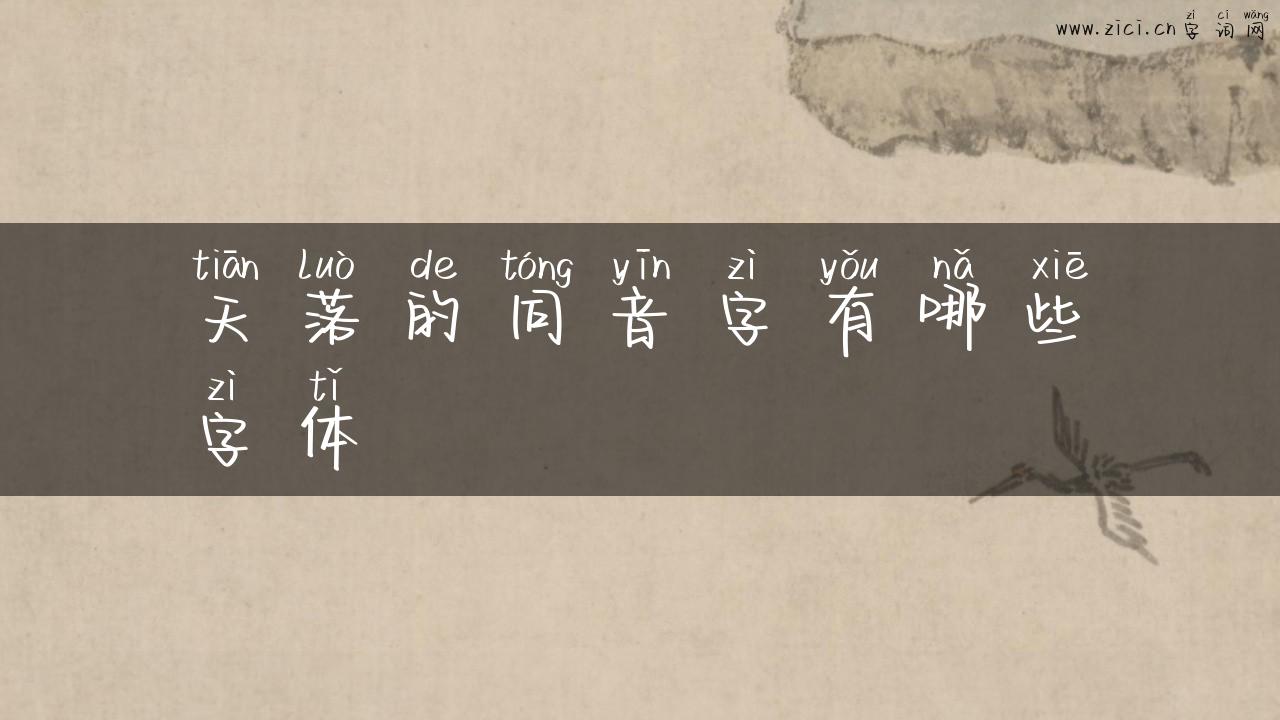 zì cí wǎng
www.zici.cn字词网
tiān luò de tóng yīn zì yǒu nǎ xiē
天落的同音字有哪些
zì tǐ
字体